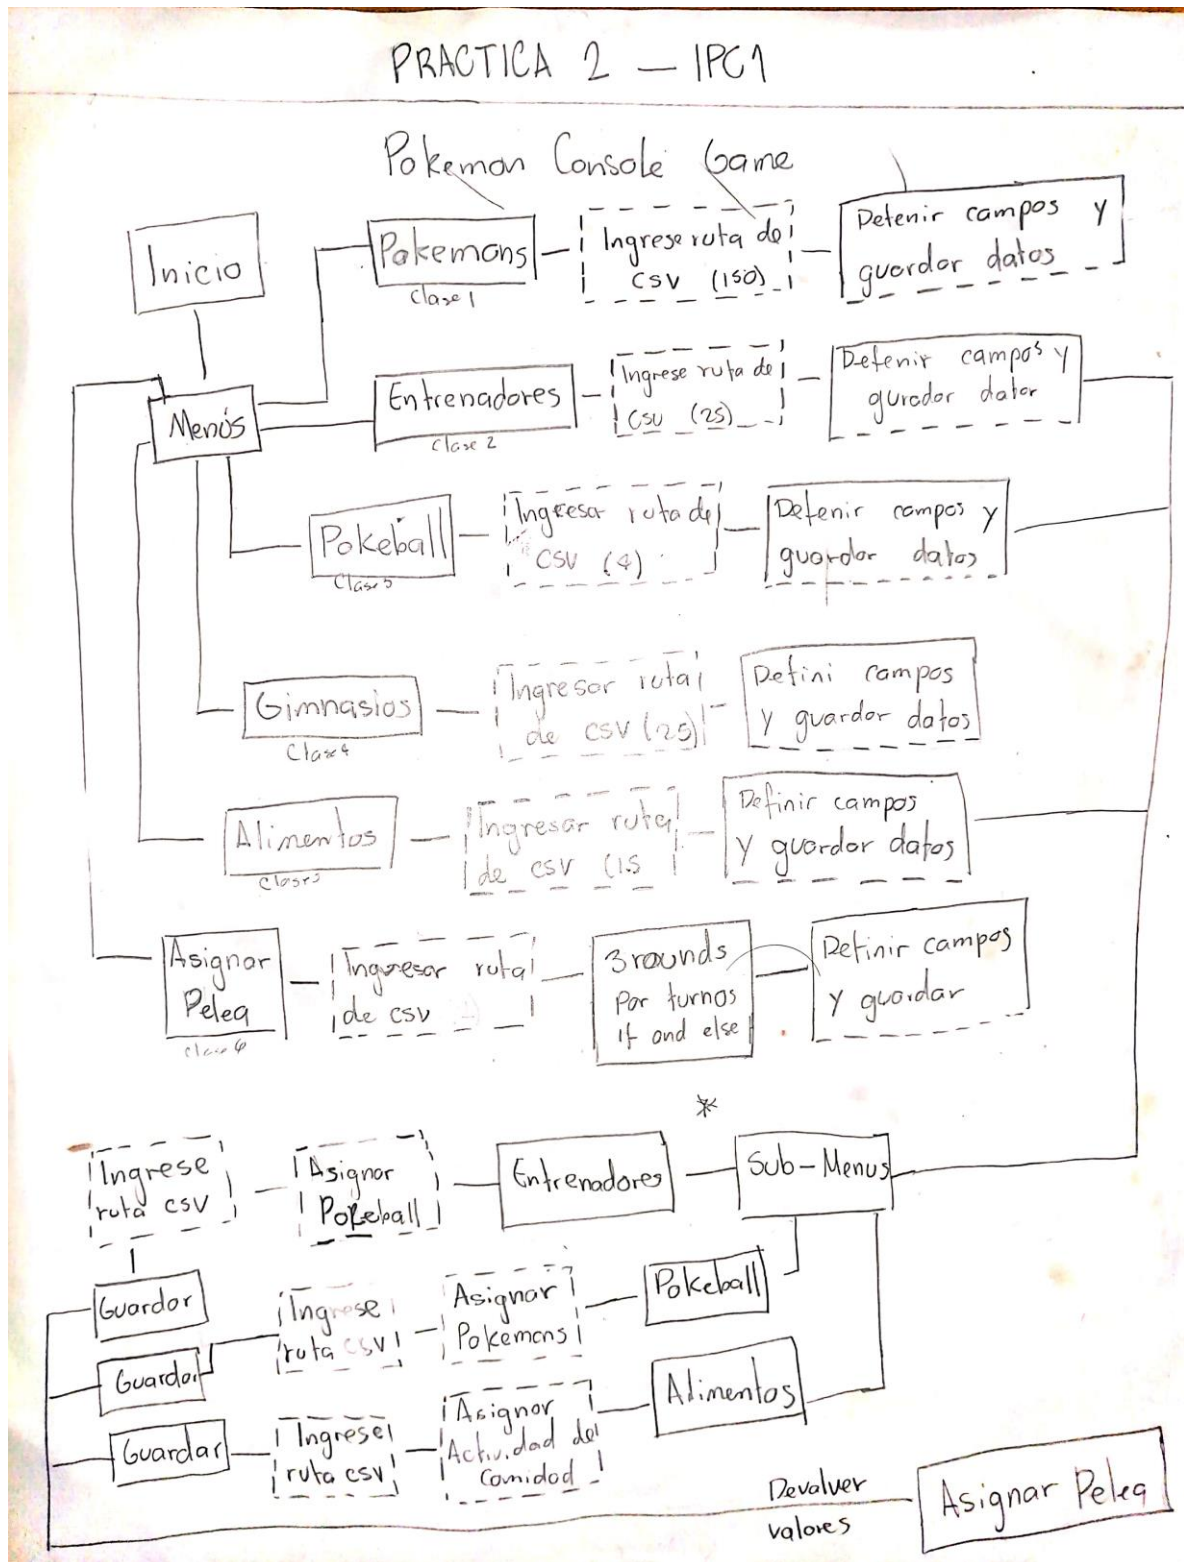 PRACTICA 2 — IPC1
Pokemon Console Game
Inicio
Pokemons
Clase 1
Ingrese ruta de
CSV (150)
Definir campos y
guardar datos
Menús
Entrenadores
Clase 2
Ingrese ruta de
CSV (25)
Definir campos y
guradar dator
Pokeball
Clase 3
Ingresar ruta de
CSV (4)
Definir campos y
guardar datos
Gimnasios
Clase 4
Ingresar ruta
de CSV (25)
Defini campos
y guardar datos
Alimentos
Clase 5
Ingresar ruta
de CSV (15
Definir campos
y guardar datos
Asignar
Pelea
Clase 6
Ingresar ruta
de csv
3 rounds
Por turnos
If and else
Definir campos
y guardar
*
Ingrese
ruta csv
Asignar
Pokeball
Entrenadores
Sub-Menus
Guardar
Ingrese
ruta CSV
Asignar
Pokemons
Pokeball
Guardar
Guardar
Ingrese
ruta csv
Asignar
Actividad de
Comidad
Alimentos
Devolver
valores
Asignar Pelea